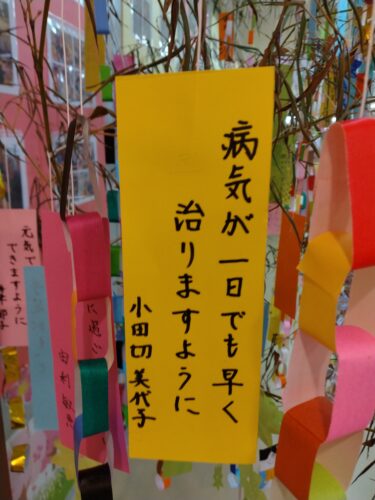 病気が一日でも早く
治りますように
小田切美代子
元気で
できますように